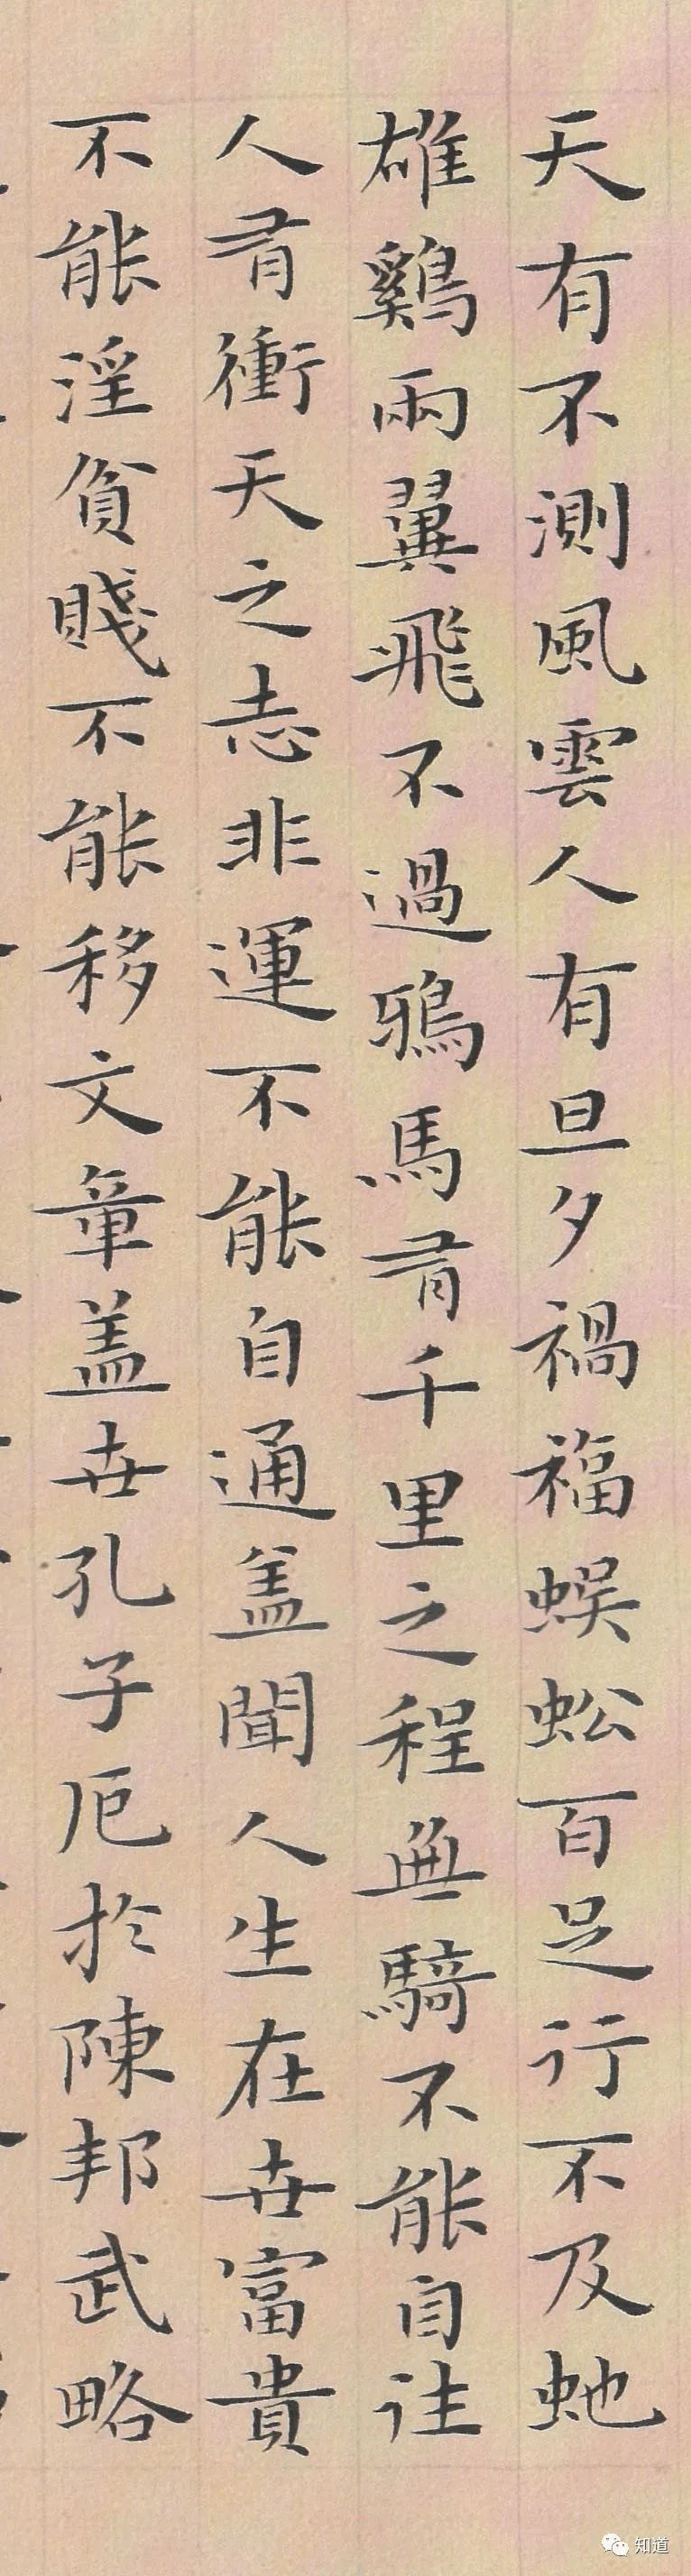 天有不測風雲人有旦夕禍福蜈蚣百足行不及虵
雄鷄兩翼飛不過鴉馬有千里之程無騎不能自往
人有衝天之志非運不能自通盖聞人生在世富貴
不能淫貧賤不能移文章盖世孔子厄於陳邦武略
知道